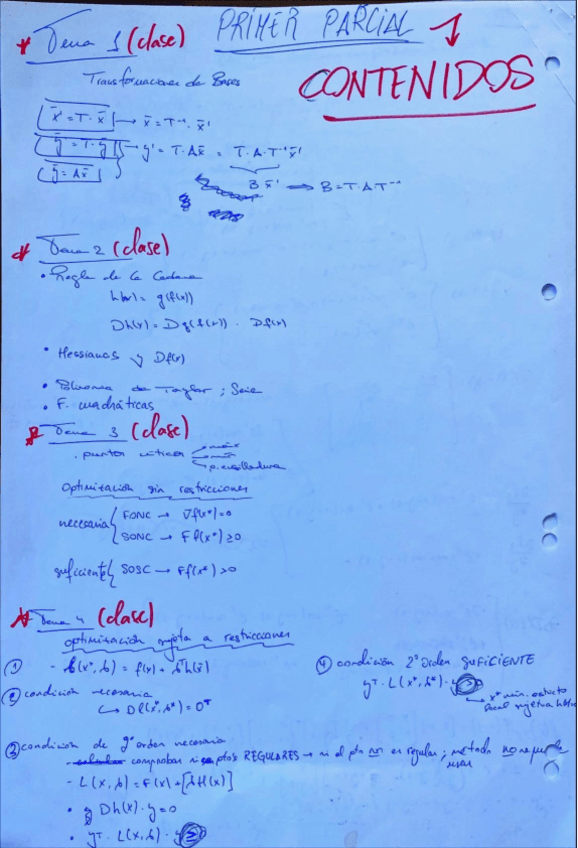 PRIMER PARCIAL
CONTENIDOS
Tema 1 (clase)
Transformaciones de Bases
x̄' = T·x̄ → x̄ = T⁻¹·x̄'
ȳ = T·ȳ' → y' = T·Ax̄ = T·A·T⁻¹x̄'
ȳ = Ax̄
B x̄' → B = T·A·T⁻¹
Tema 2 (clase)
• Regla de la Cadena
h(x) = g(f(x))
Dh(x) = Dg(f(x)) · Df(x)
• Hessianas y Df(x)
• de Taylor; Serie
• F. cuadráticas
Tema 3 (clase)
. puntos críticos → máx
→ mín
→ p. ensilladura
optimización sin restricciones
necesaria { FONC → ∇f(x*)=0
SONC → Ff(x*) ≥0
suficiente { SOSC → Ff(x*) >0
Tema 4 (clase)
optimización sujeta a restricciones
① - l(x*, λ) = f(x) + λᵀh(x̄)
② condición necesaria
↳ Dl(x*, λ*) = 0ᵀ
③ condición de 2º orden necesaria
- comprobar si ptos REGULARES → si el pto no es regular; método no se puede
usar
- L(x, λ) = F(x) + [λH(x)]
• Dh(x)·y=0
• yᵀ·L(x, λ)·y ≥
④ condición 2º orden SUFICIENTE
yᵀ·L(x*, λ*)·y >
↳ x* min. estricto
local sujeto a